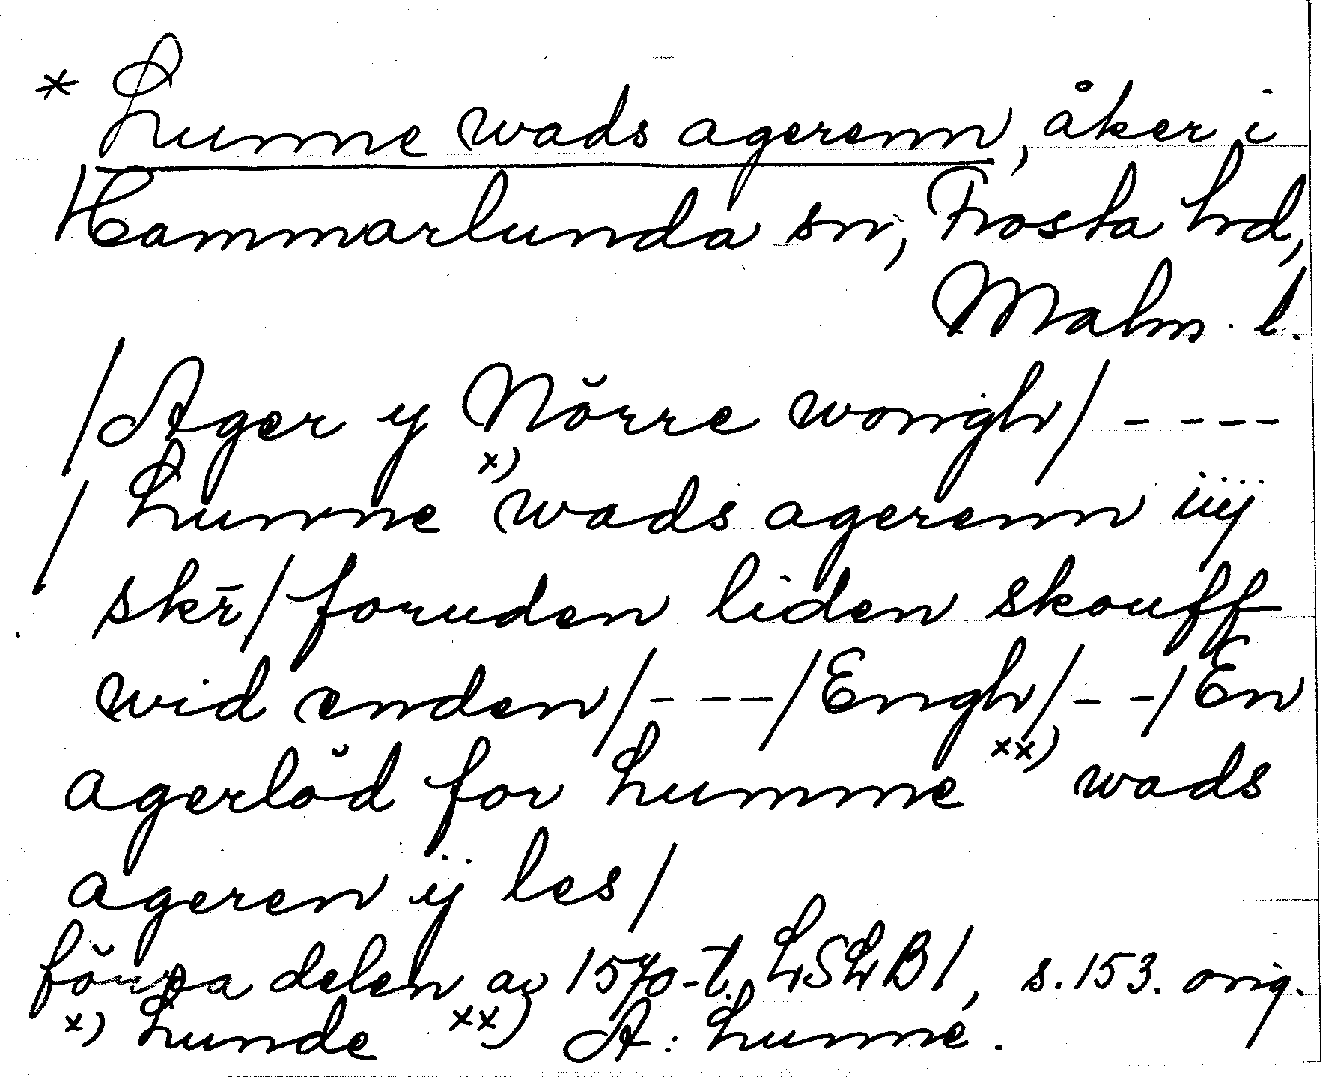 * Lunne wads agerenn, åker i
Hammarlunda sn, Frosta hd,
Malm. l.
/Ager y Nŏrre wongh/ ----
/ Lunne x) wads agerenn iiij
skr̄/foruden liden skouff
wid enden/---/Engh/--/En
agerlŏd for Lumme xx) wads
ageren ij les/
förra delen av 1570-t. LSLB1, s.153. orig.
x) Lunde xx) A: Lunne.